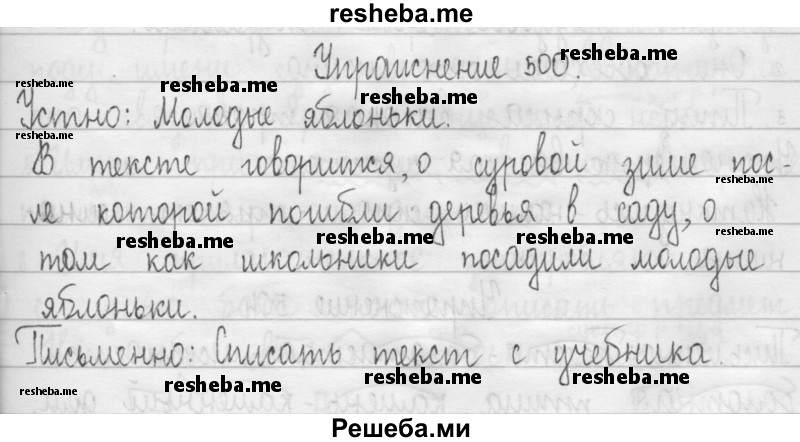 resheba.me
Упражнение 500
resheba.me
resheba.me resheba.me
Устно: Молодые яблоньки.
resheba.me
В тексте говорится, о суровой зиме пос
resheba.me
ле которой погибли деревья в саду, о
resheba.me resheba.me resheba.me
том как школьники посадили молодые
яблоньки.
Письменно: Списать текст с учебника.
resheba.me resheba.me resheba.me resheba.me
Решеба.ми